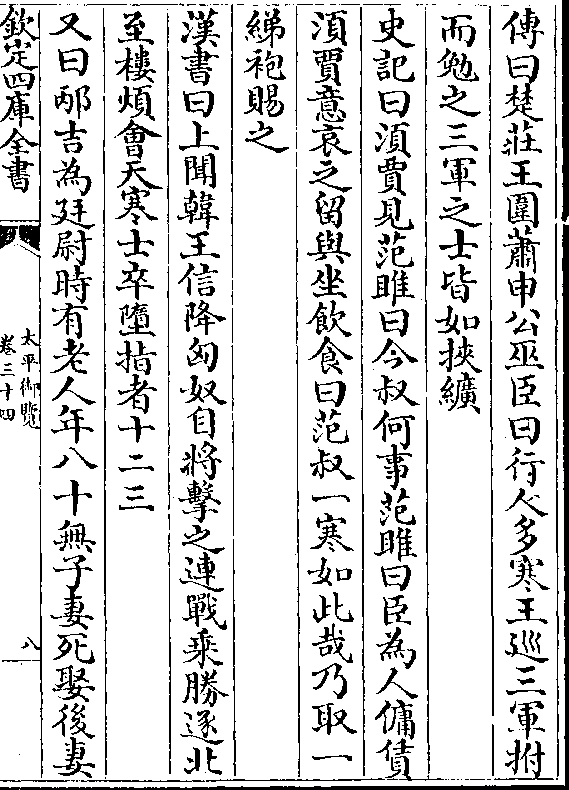 傳曰楚莊王圍蕭申公巫臣曰行人多寒王巡三軍拊
而勉之三軍之士皆如挾纊
史記曰須賈見范睢曰今叔何事范睢曰臣為人傭賃
須賈意哀之留與坐飲食曰范叔一寒如此哉乃取一
綈袍賜之
漢書曰上聞韓王信降匈奴自將擊之連戰乗勝逐北
至樓煩會天寒士卒墮指者十二三
又曰邴吉為廷尉時有老人年八十無子妻死娶後妻
欽定四庫全書
太平御覽
卷三十四
八